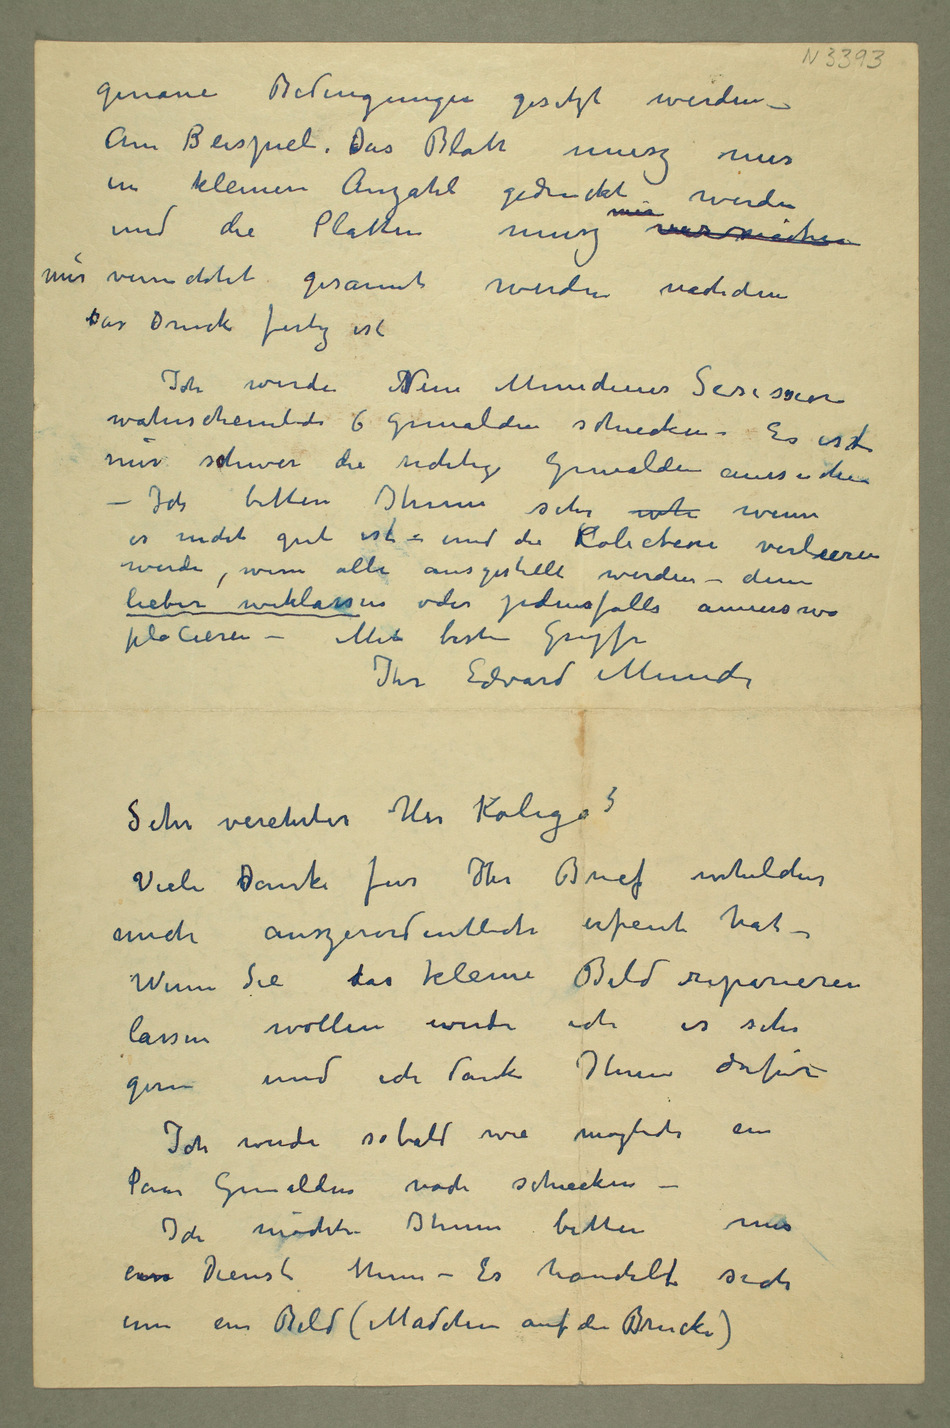 N 3393
genaue Bedingungen gesetzt werden –
Am Beispiel. Das Blatt musz nur
in kleinen Anzahl gedruckt werden
und die Platten musz
mir vernichtet gesannt werden nachdem
das Druck fertig ist
Ich werde Neue Munchener Sesession
wahrscheinlich 6 Gemälden schicken – Es ist
mir schwer die richtige Gemälden aussuchen
– Ich bitten Ihnen sehr wenn
es nicht gut ist – und die Kolection verlieren
werde, wenn alle ausgestellt werden – denn
lieber weklassen oder jedensfalls annerswo
placieren – Mit besten Grusse
Ihr Edvard Munch
Sehr verehrter Herr Kolega!
Viele Danke fur Ihr Brief welcher
mich auszerordentlich erfeut hat –
Wenn Sie das kleine Bild reparieren
lassen wollen werde ich es sehr
gern und ich danke Ihnen dafür
Ich werde sobald wie moglich ein
Paar Gemälden noch schicken –
Ich möchte Ihnen bitten mir
ein Dienst thun – Es handelt sich
um ein Bild (Madchen auf der Brucke)